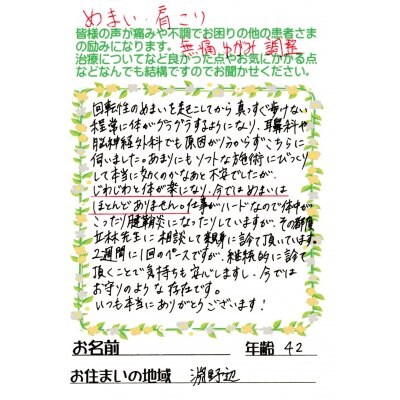 めまい・肩こり
皆様の声が痛みや不調でお困りの他の患者さま
の励みになります。無痛ゆがみ調整
治療についてなど良かった点やお気にかかる点
などなんでも結構ですのでお聞かせください。
回転性のめまいを起こしてから真っすぐ歩けない
程常に体がグラグラするようになり、耳鼻科や
脳神経外科でも原因が分からずこちらに
伺いました。あまりにもソフトな施術にびっくり
して本当に効くのかなあと不安でしたが、
じわじわと体が楽になり、今ではめまいは
ほとんどありません。仕事がハードなので体中が
こったり腱鞘炎になったりしていますが、その都度
若林先生に相談して親身に診て頂いています。
2週間に1回のペースですが、継続的に診て
頂くことで気持ちも安心しますし、今では
お守りのような存在です。
いつも本当にありがとうございます!
お名前 年齢 42
お住まいの地域 淵野辺